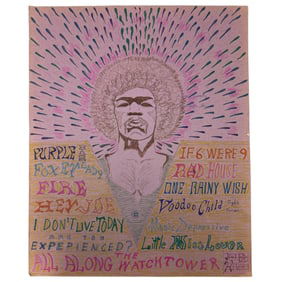 PURPLE HAZE
IF 6 WERE 9
FOXEY LADY
RED HOUSE
FIRE
ONE RAINY WISH
HEY JOE
Voodoo Child
I DON'T LIVE TODAY
Manic Depression
ARE YOU
EXPERIENCED?
Little Miss Lover
ALL ALONG THE WATCHTOWER